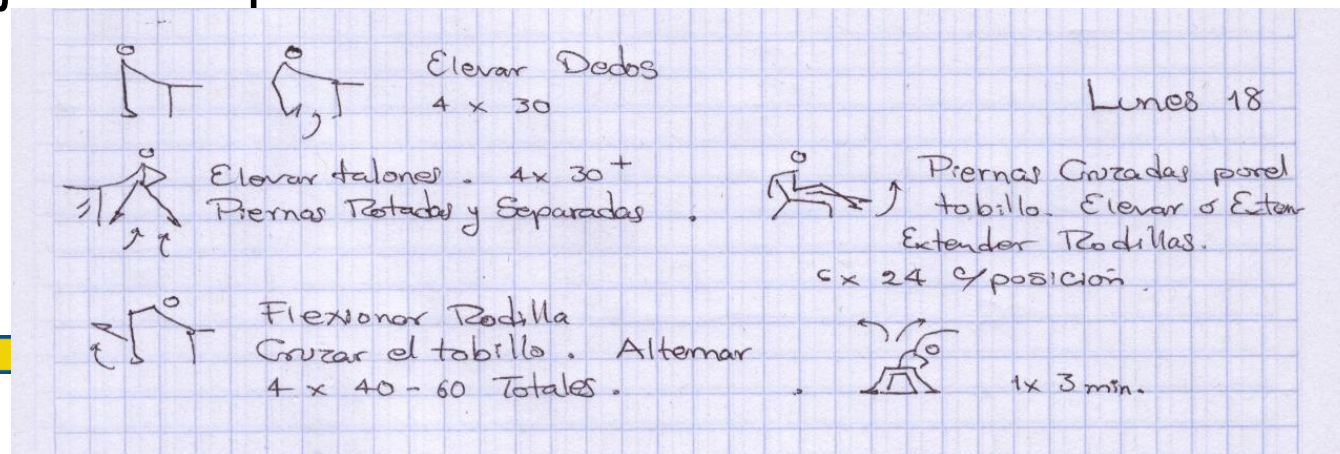 Elevar Dedos
4 x 30
Lunes 18
Elevar talones. 4x 30+
Piernas Rotadas y Separadas.
Piernas Cruzadas por el
tobillo. Elevar o Exten
Extender Rodillas.
6x 24 c/posición.
Flexionar Rodilla
Cruzar el tobillo. Alternar
4 x 40 - 60 Totales.
1x 3 min.